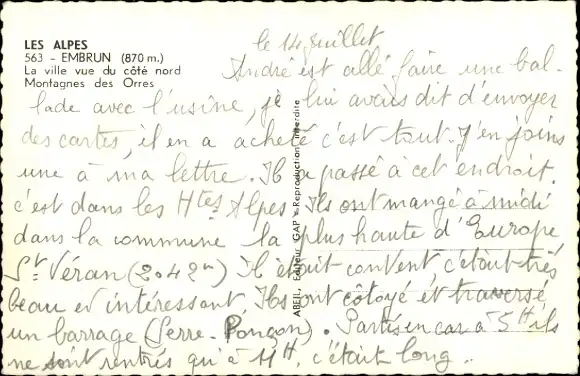 LES ALPES
563 - EMBRUN (870 m.)
La ville vue du côté nord
Montagnes des Orres
le 14 juillet
André est allé faire une bal-
lade avec l'usine, je lui avais dit d'envoyer
des cartes, il en a acheté c'est tout. J'en joins
une à ma lettre. Il a passé à cet endroit.
c'est dans les Htes Alpes. Ils ont mangé à midi
dans la commune la plus haute d'Europe
St Véran (2042m) Il était content c'était très
beau et intéressant. Ils ont côtoyé et traversé
un barrage (Serre-Ponçon). Partis en car à 5H ils
ne sont rentrés qu'à 11H. c'était long..
ABEIL Editeur GAP - Reproduction interdite